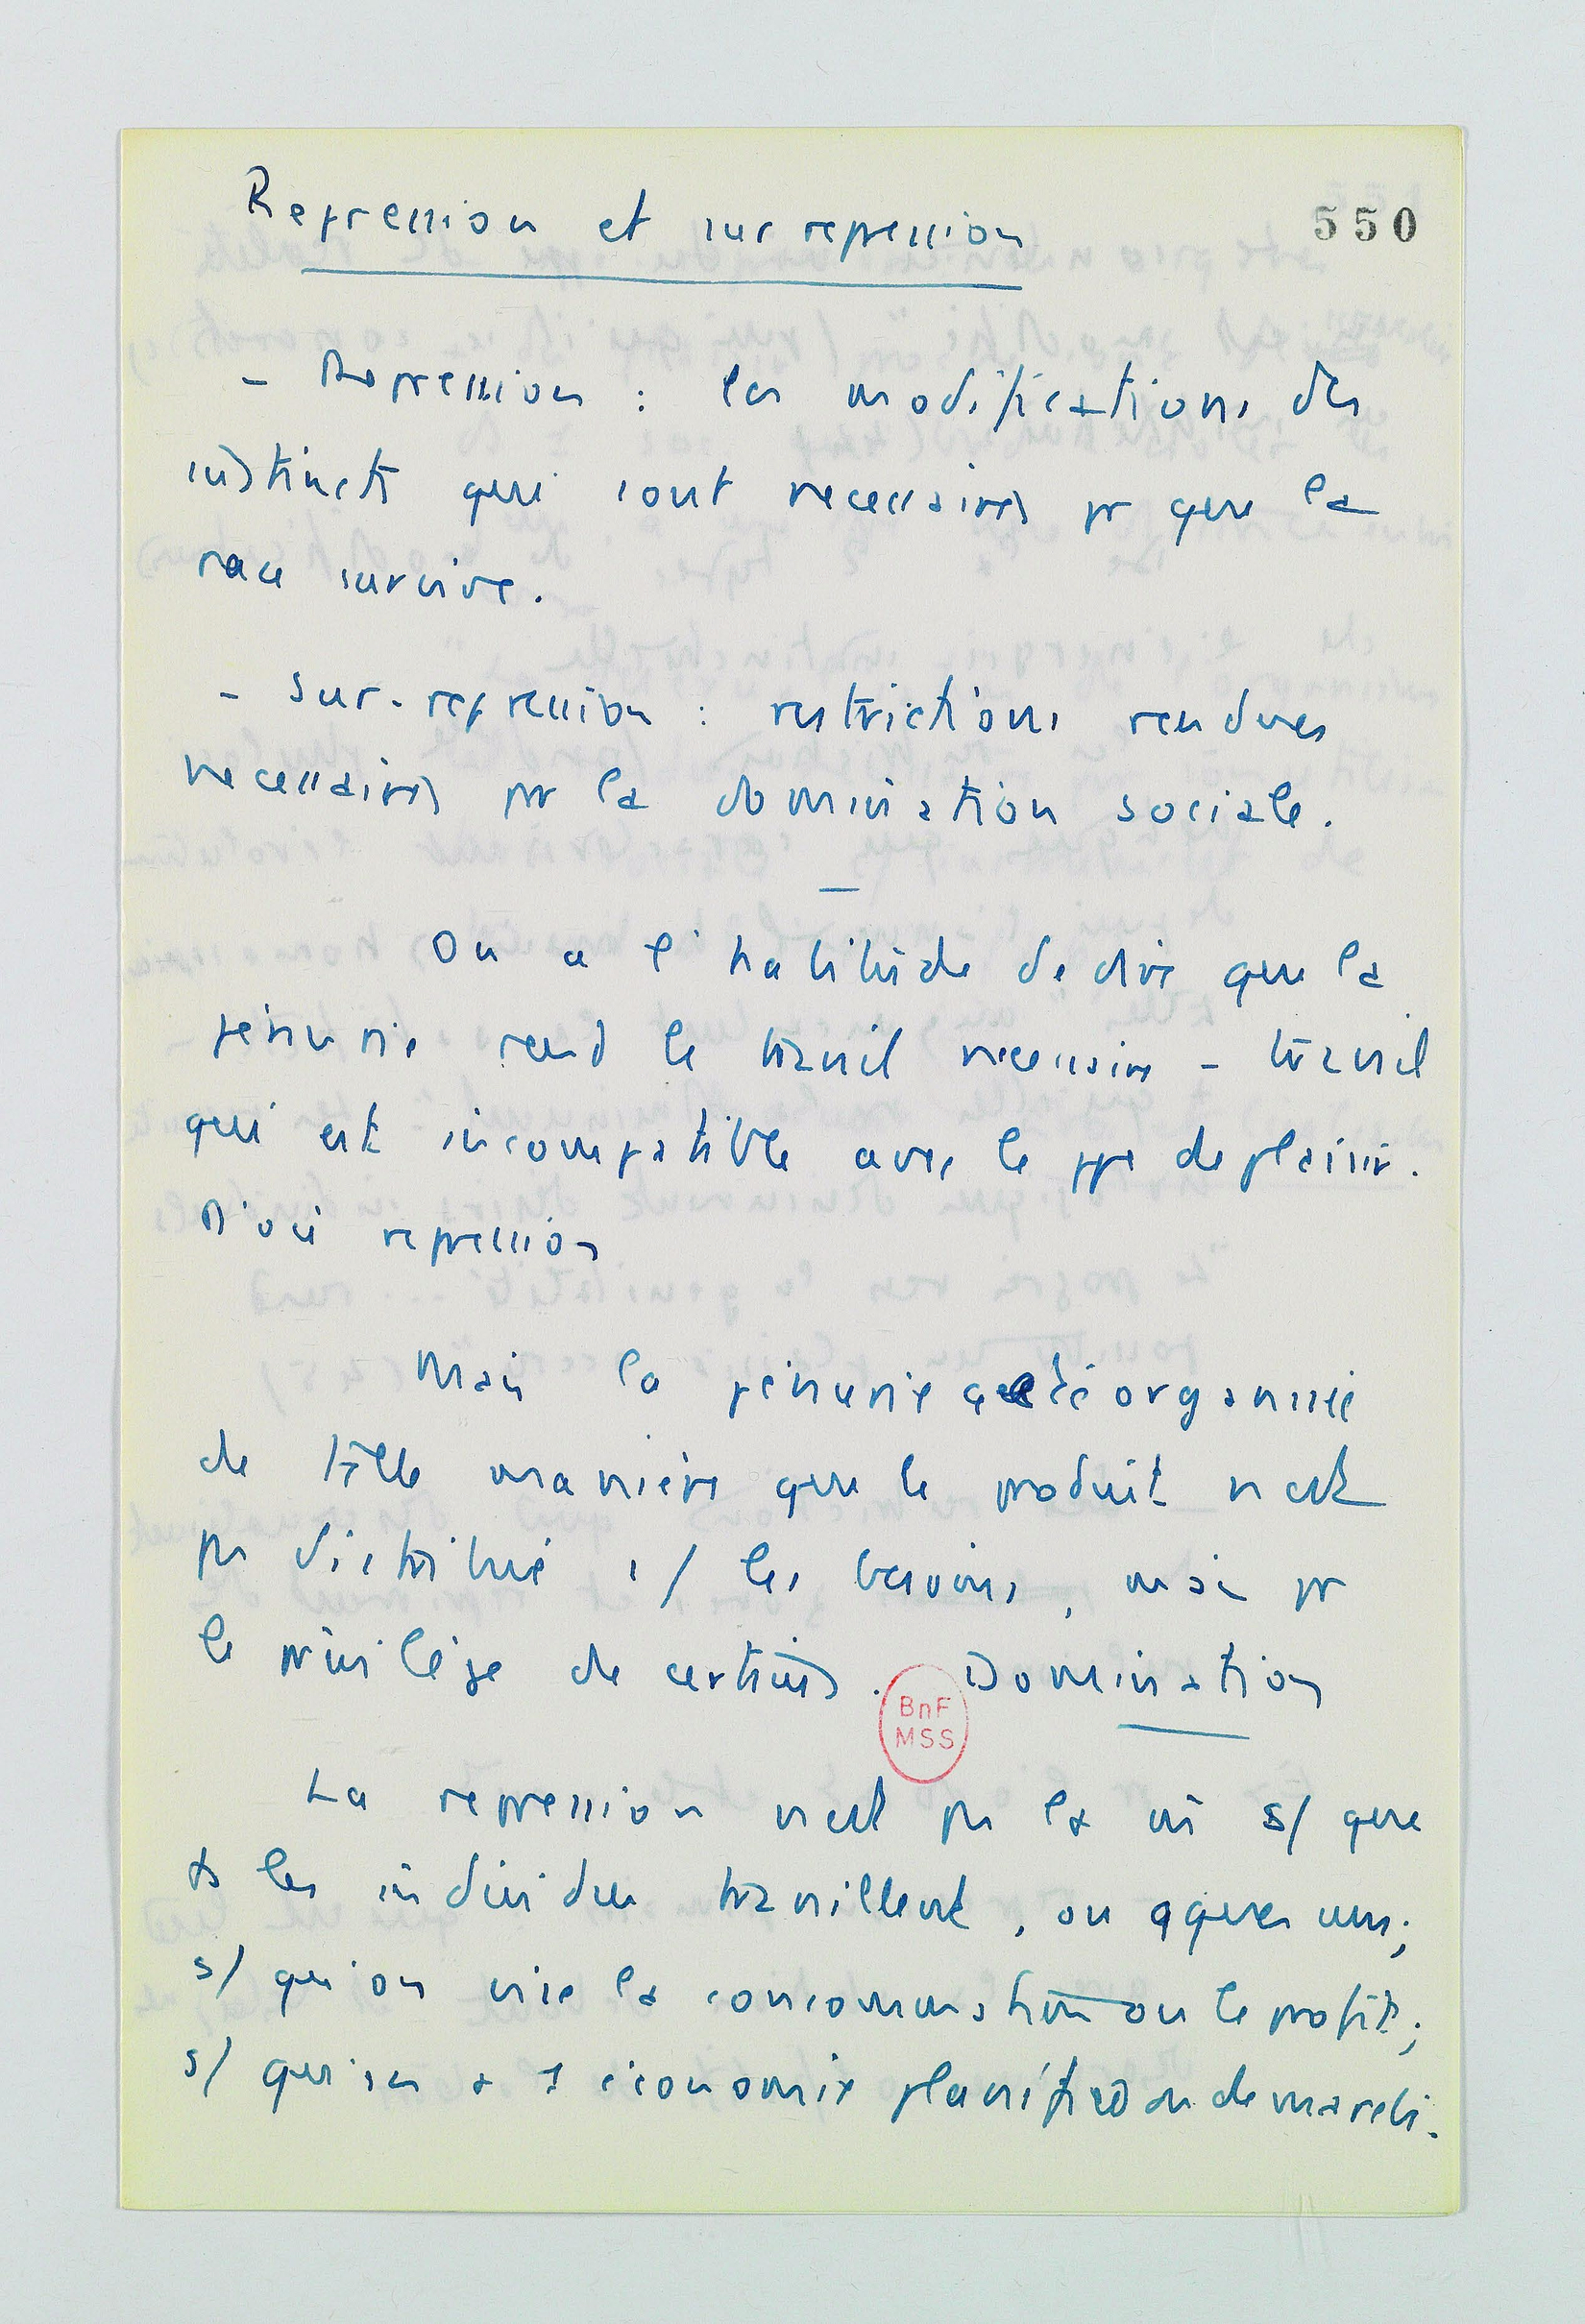 550
Repression et sur repression
- Repression : les modifications des
instincts qui sont necessaires pr que la
race survive.
- Sur-repression : restrictions rendues
necessaires pr la domination sociale.
—
On a l'habitude de dire que la
pénurie rend le travail necessaire - travail
qui est incompatible avec le ppe de plaisir.
D'où repression
Mais la pénurie a été organisée
de telle manière que le produit n'est
pas distribué s/ les besoins, mais pr
le privilège de certains. Domination
BnF
MSS
La repression n'est pas la m s/ que
ts les individus travaillent, ou qques uns;
s/ qu'on vise la consommation ou le profit;
s/ qu'on a 1 économie planifiée ou de marché.